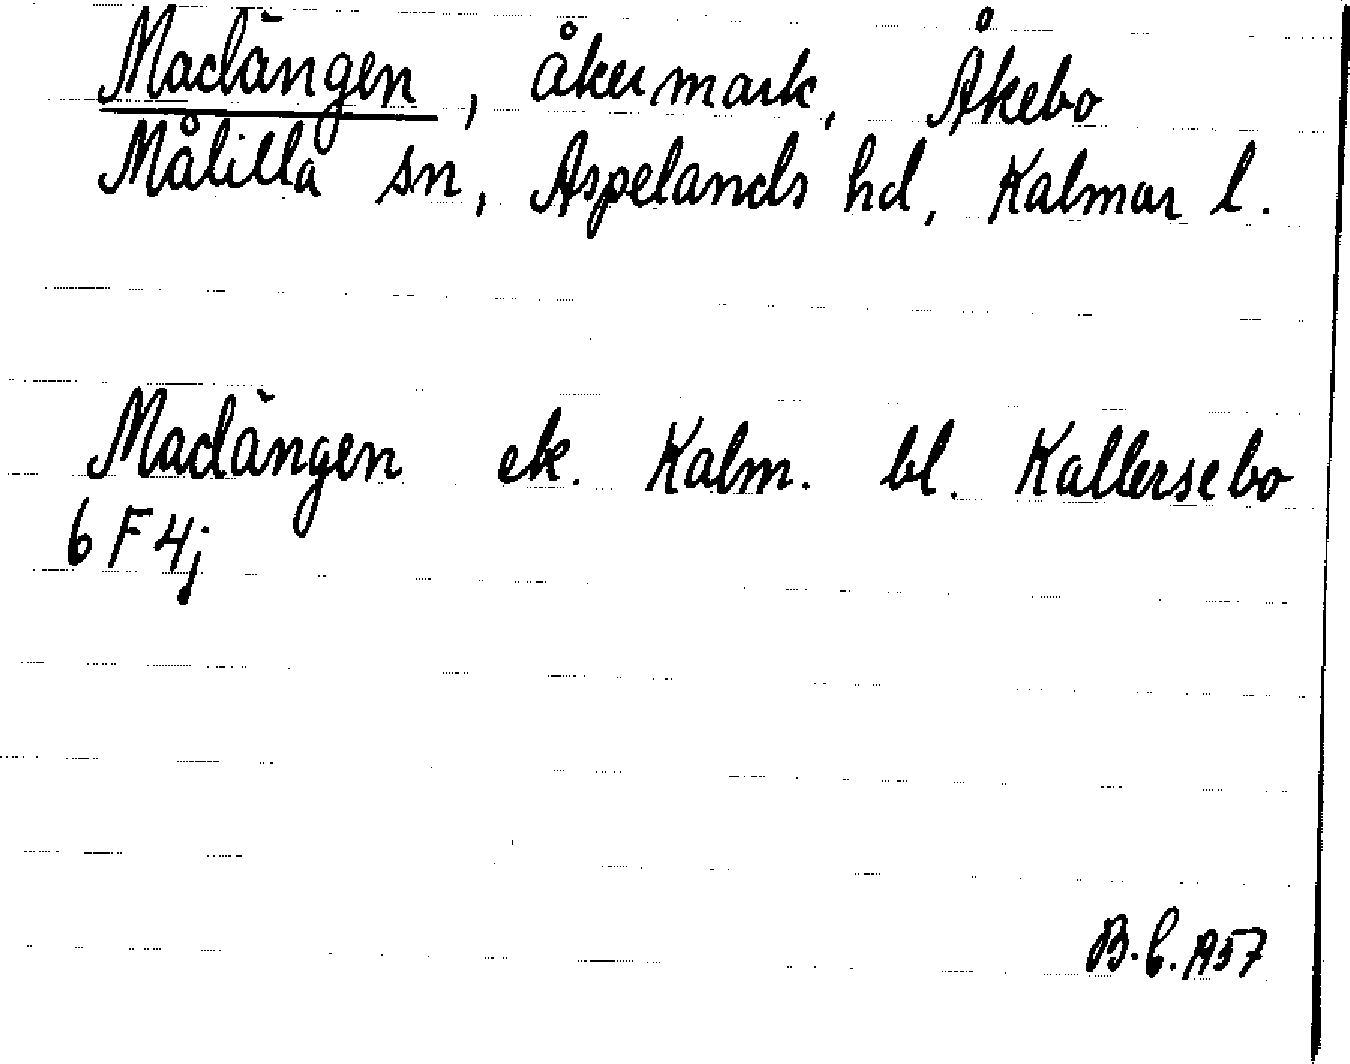 Madängen, åkermark, Åkebo
Målilla sn, Aspelands hd, Kalmar l.
Madängen ek. Kalm. bl. Kallersebo
6 F 4j
B.E. 1957